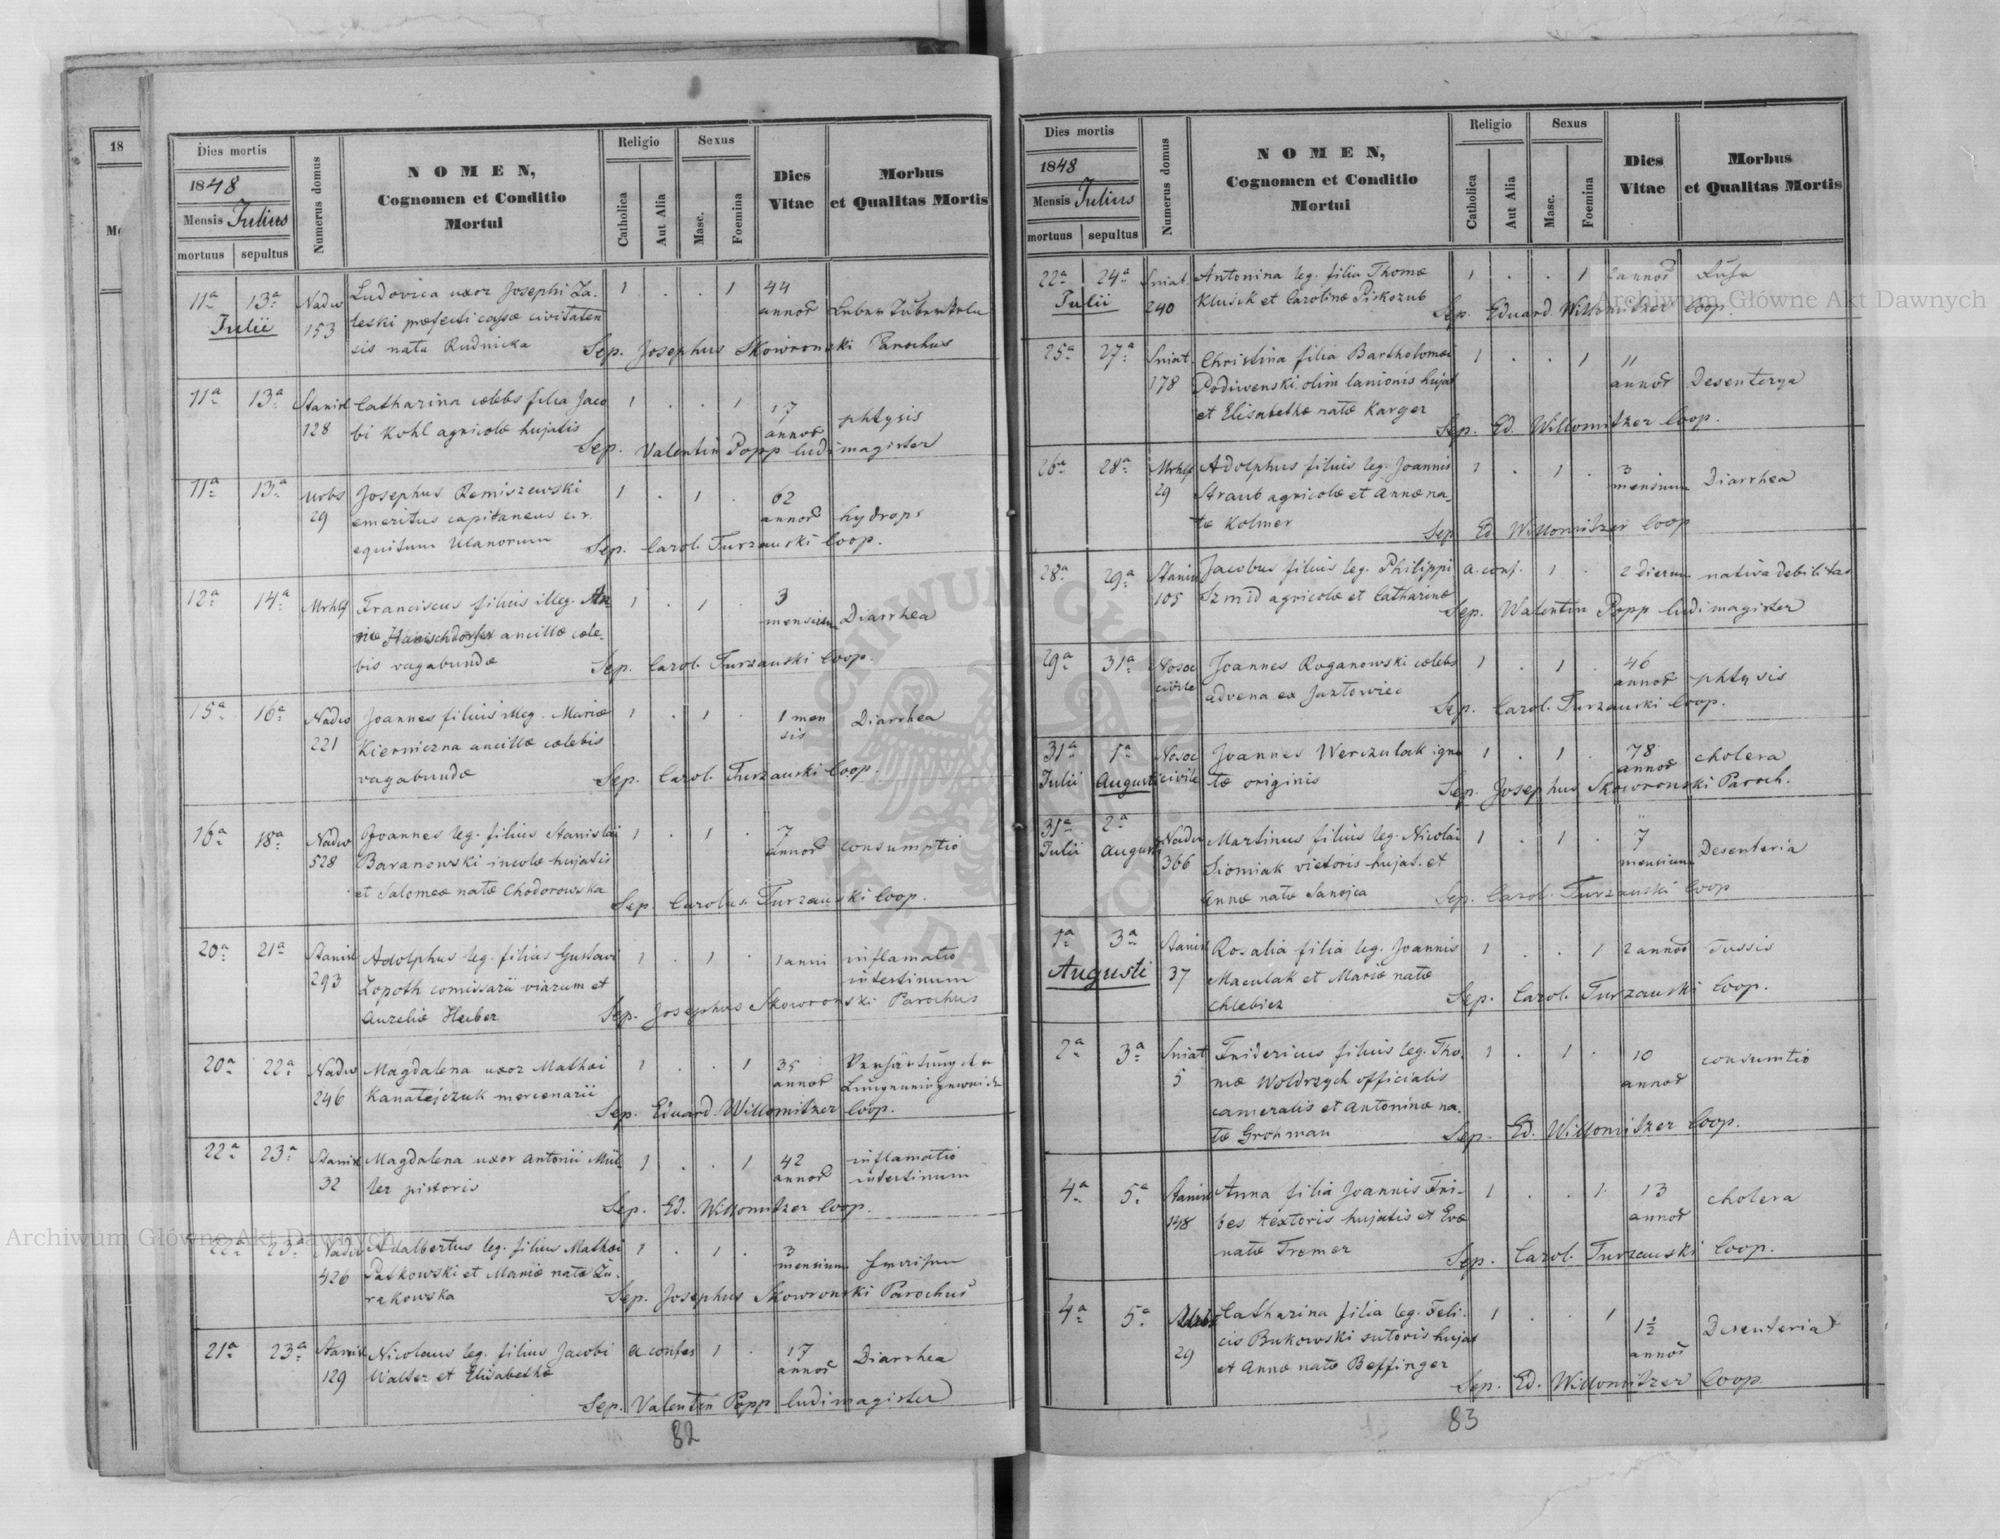 18
Dies mortis
1848
Mensis Julius
mortuus sepultus
Numerus domus
NOMEN,
Cognomen et Conditio
Mortui
Religio
Catholica
Aut Alia
Sexus
Masc.
Foemina
Dies
Vitae
Morbus
et Qualitas Mortis
11ª 13ª Nadw Ludovica uxor Josephi Za- 1 . . 1 44
Julii 153 leski præfecti cassæ civitaten annor
sis nata Rudnicka Sep. Josephus Skowronski Parochus
11ª 13ª Stanisl Catharina cælebs filia Jaco 1 . . 1 17 phtysis
128 bi Kohl agricolæ hujatis annor
Sep. Valentin Popp ludimagister
11ª 13ª Urbs Josephus Remiszewski 1 . 1 . 62
29 emeritus capitaneus c.r. annor hydrops
equitum Ulanorum Sep. Carol. Turzanski Coop.
12ª 14ª Mrhlf Franciscus filius illeg. An 1 . 1 . 3
næ Hanischdorfer ancillæ cæle- mensium Diarrhea
bis vagabundæ Sep. Carol. Turzanski Coop.
15ª 16ª Nadw Joannes filius illeg. Mariæ 1 . 1 . 1 men Diarrhea
221 Kierniczna ancillæ cælebis sis
vagabundæ Sep. Carol. Turzanski Coop.
16ª 18ª Nadw Joannes leg. filius Stanislai 1 . 1 . 7
528 Baranowski incolæ hujatis annor consumptio
et Salomeæ natæ Chodorowska
Sep. Carolus Turzanski Coop.
20ª 21ª Stanisl Adolphus leg. filius Gustavi 1 . 1 . 1 anni inflamatio
293 Zopoth comissarii viarum et intestinum
Aureliæ Heiber Sep. Josephus Skowronski Parochus
20ª 22ª Nadw Magdalena uxor Mathæi 1 . . 1 35
246 Kanatejczuk mercenarii annor
Sep. Eduard Willomitzer Coop.
22ª 23ª Stanisl Magdalena uxor Antonii Mül 1 . . 1 42 inflamatio
32 ler pistoris annor intestinum
Sep. Ed. Willomitzer Coop.
22ª 23ª Nadw Adalbertus leg. filius Mathæi 1 . 1 . 3
426 Patkowski et Mariæ natæ Zu- mensium
rakowska Sep. Josephus Skowronski Parochus
21ª 23ª Stanisl Nicolaus leg. filius Jacobi a. confes 1 . 17
129 Walter et Elisabethæ annor Diarrhea
Sep. Valentin Popp ludimagister
82
Dies mortis
1848
Mensis Julius
mortuus sepultus
Numerus domus
NOMEN,
Cognomen et Conditio
Mortui
Religio
Catholica
Aut Alia
Sexus
Masc.
Foemina
Dies
Vitae
Morbus
et Qualitas Mortis
22ª 24ª Sniat Antonina leg. filia Thomæ 1 . . 1 2 annor
Julii 240 Klusik et Carolinæ Piskozub
Sep. Eduard Willomitzer Coop.
25ª 27ª Sniat Christina filia Bartholomæi 1 . . 1 11
178 Podiwenski olim lanionis hujat annor Desenterya
et Elisabethæ natæ Karger
Sep. Ed. Willomitzer Coop.
26ª 28ª Mrhlf Adolphus filius leg. Joannis 1 . 1 . 3
29 Straub agricolæ et Annæ na- mensium Diarrhea
tæ Kolmer Sep. Ed. Willomitzer Coop
28ª 29ª Stanisl Jacobus filius leg. Philippi a. conf. 1 . 2 dierum nativa debilitas
105 Szmid agricolæ et Catharinæ
Sep. Walentin Popp ludimagister
29ª 31ª Nosoc Joannes Roganowski cælebs 1 . 1 . 46
civile advena ex Jazłowiec annor phtysis
Sep. Carol. Turzanski Coop.
31ª 1ª Nosoc Joannes Werczulak igno 1 . 1 . 78 cholera
Julii Augusti civile tæ originis annor
Sep. Josephus Skowronski Paroch.
31ª 2ª Nadw Martinus filius leg. Nicolai 1 . 1 . 7
Julii Augusti 366 Siomiak vietoris hujat. et mensium Desenteria
Annæ natæ Sanojca Sep. Carol. Turzanski Coop
1ª 3ª Stanisl Rosalia filia leg. Joannis 1 . . 1 2 annor Tussis
Augusti 37 Maculak et Mariæ natæ
Chlebicz Sep. Carol. Turzanski Coop.
2ª 3ª Sniat Fridericus filius leg. Tho- 1 . 1 . 10 consumtio
5 mæ Woldrzych officialis annor
cameralis et Antoninæ na-
tæ Grohman Sep. Ed. Willomitzer Coop.
4ª 5ª Stanisl Anna filia Joannis Tri- 1 . . 1 13 cholera
148 bes textoris hujatis et Evæ annor
natæ Tremer Sep. Carol. Turzanski Coop.
4ª 5ª Catharina filia leg. Feli- 1 . . 1 1½ Desenteria
29 cis Bukowski sutoris hujat annor
et Annæ natæ Beffinger
Sep. Ed. Willomitzer Coop.
83
Archiwum Główne Akt Dawnych
Archiwum Główne Akt Dawnych
ARCHIWUM GŁÓWNE AKT DAWNYCH